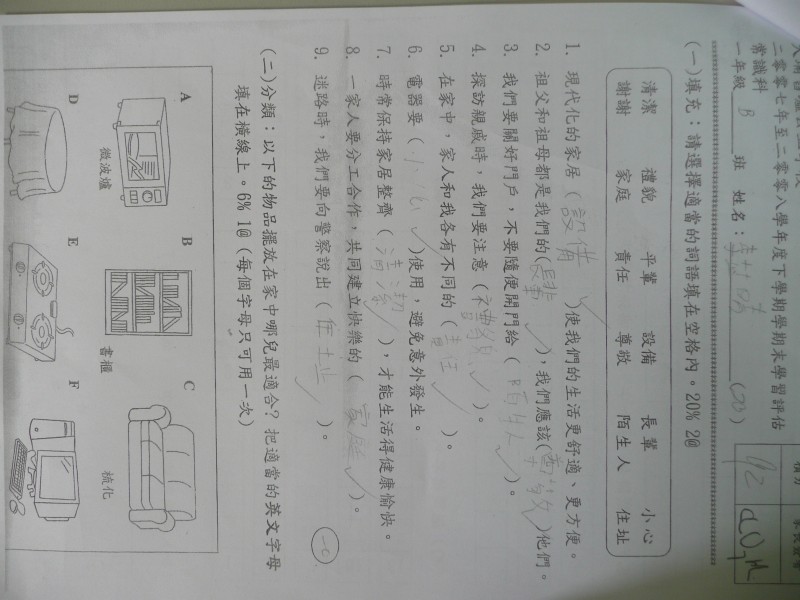 二零零七年至二零零八學年度下學期學期末學習評估
常識科
一年級 B 班 姓名：
92
(一)填充：請選擇適當的詞語填在空格內。20% 2@
清潔 禮貌 平輩 設備 長輩 小心
謝謝 家庭 責任 尊敬 陌生人 住址
1. 現代化的家居（設備）使我們的生活更舒適、更方便。
2. 祖父和祖母都是我們的(長輩)，我們應該(尊敬)他們。
3. 我們要關好門戶，不要隨便開門給（陌生人）。
4. 探訪親戚時，我們要注意（禮貌）。
5. 在家中，家人和我各有不同的（責任）。
6. 電器要（小心）使用，避免意外發生。
7. 時常保持家居整齊（清潔），才能生活得健康愉快。
8. 一家人要分工合作，共同建立快樂的（家庭）。
9. 迷路時，我們要向警察說出（住址）。
(二)分類：以下的物品擺放在家中哪兒最適合？把適當的英文字母
填在橫線上。6% 1@（每個字母只可用一次）
A B C
微波爐 書櫃 梳化
D E F